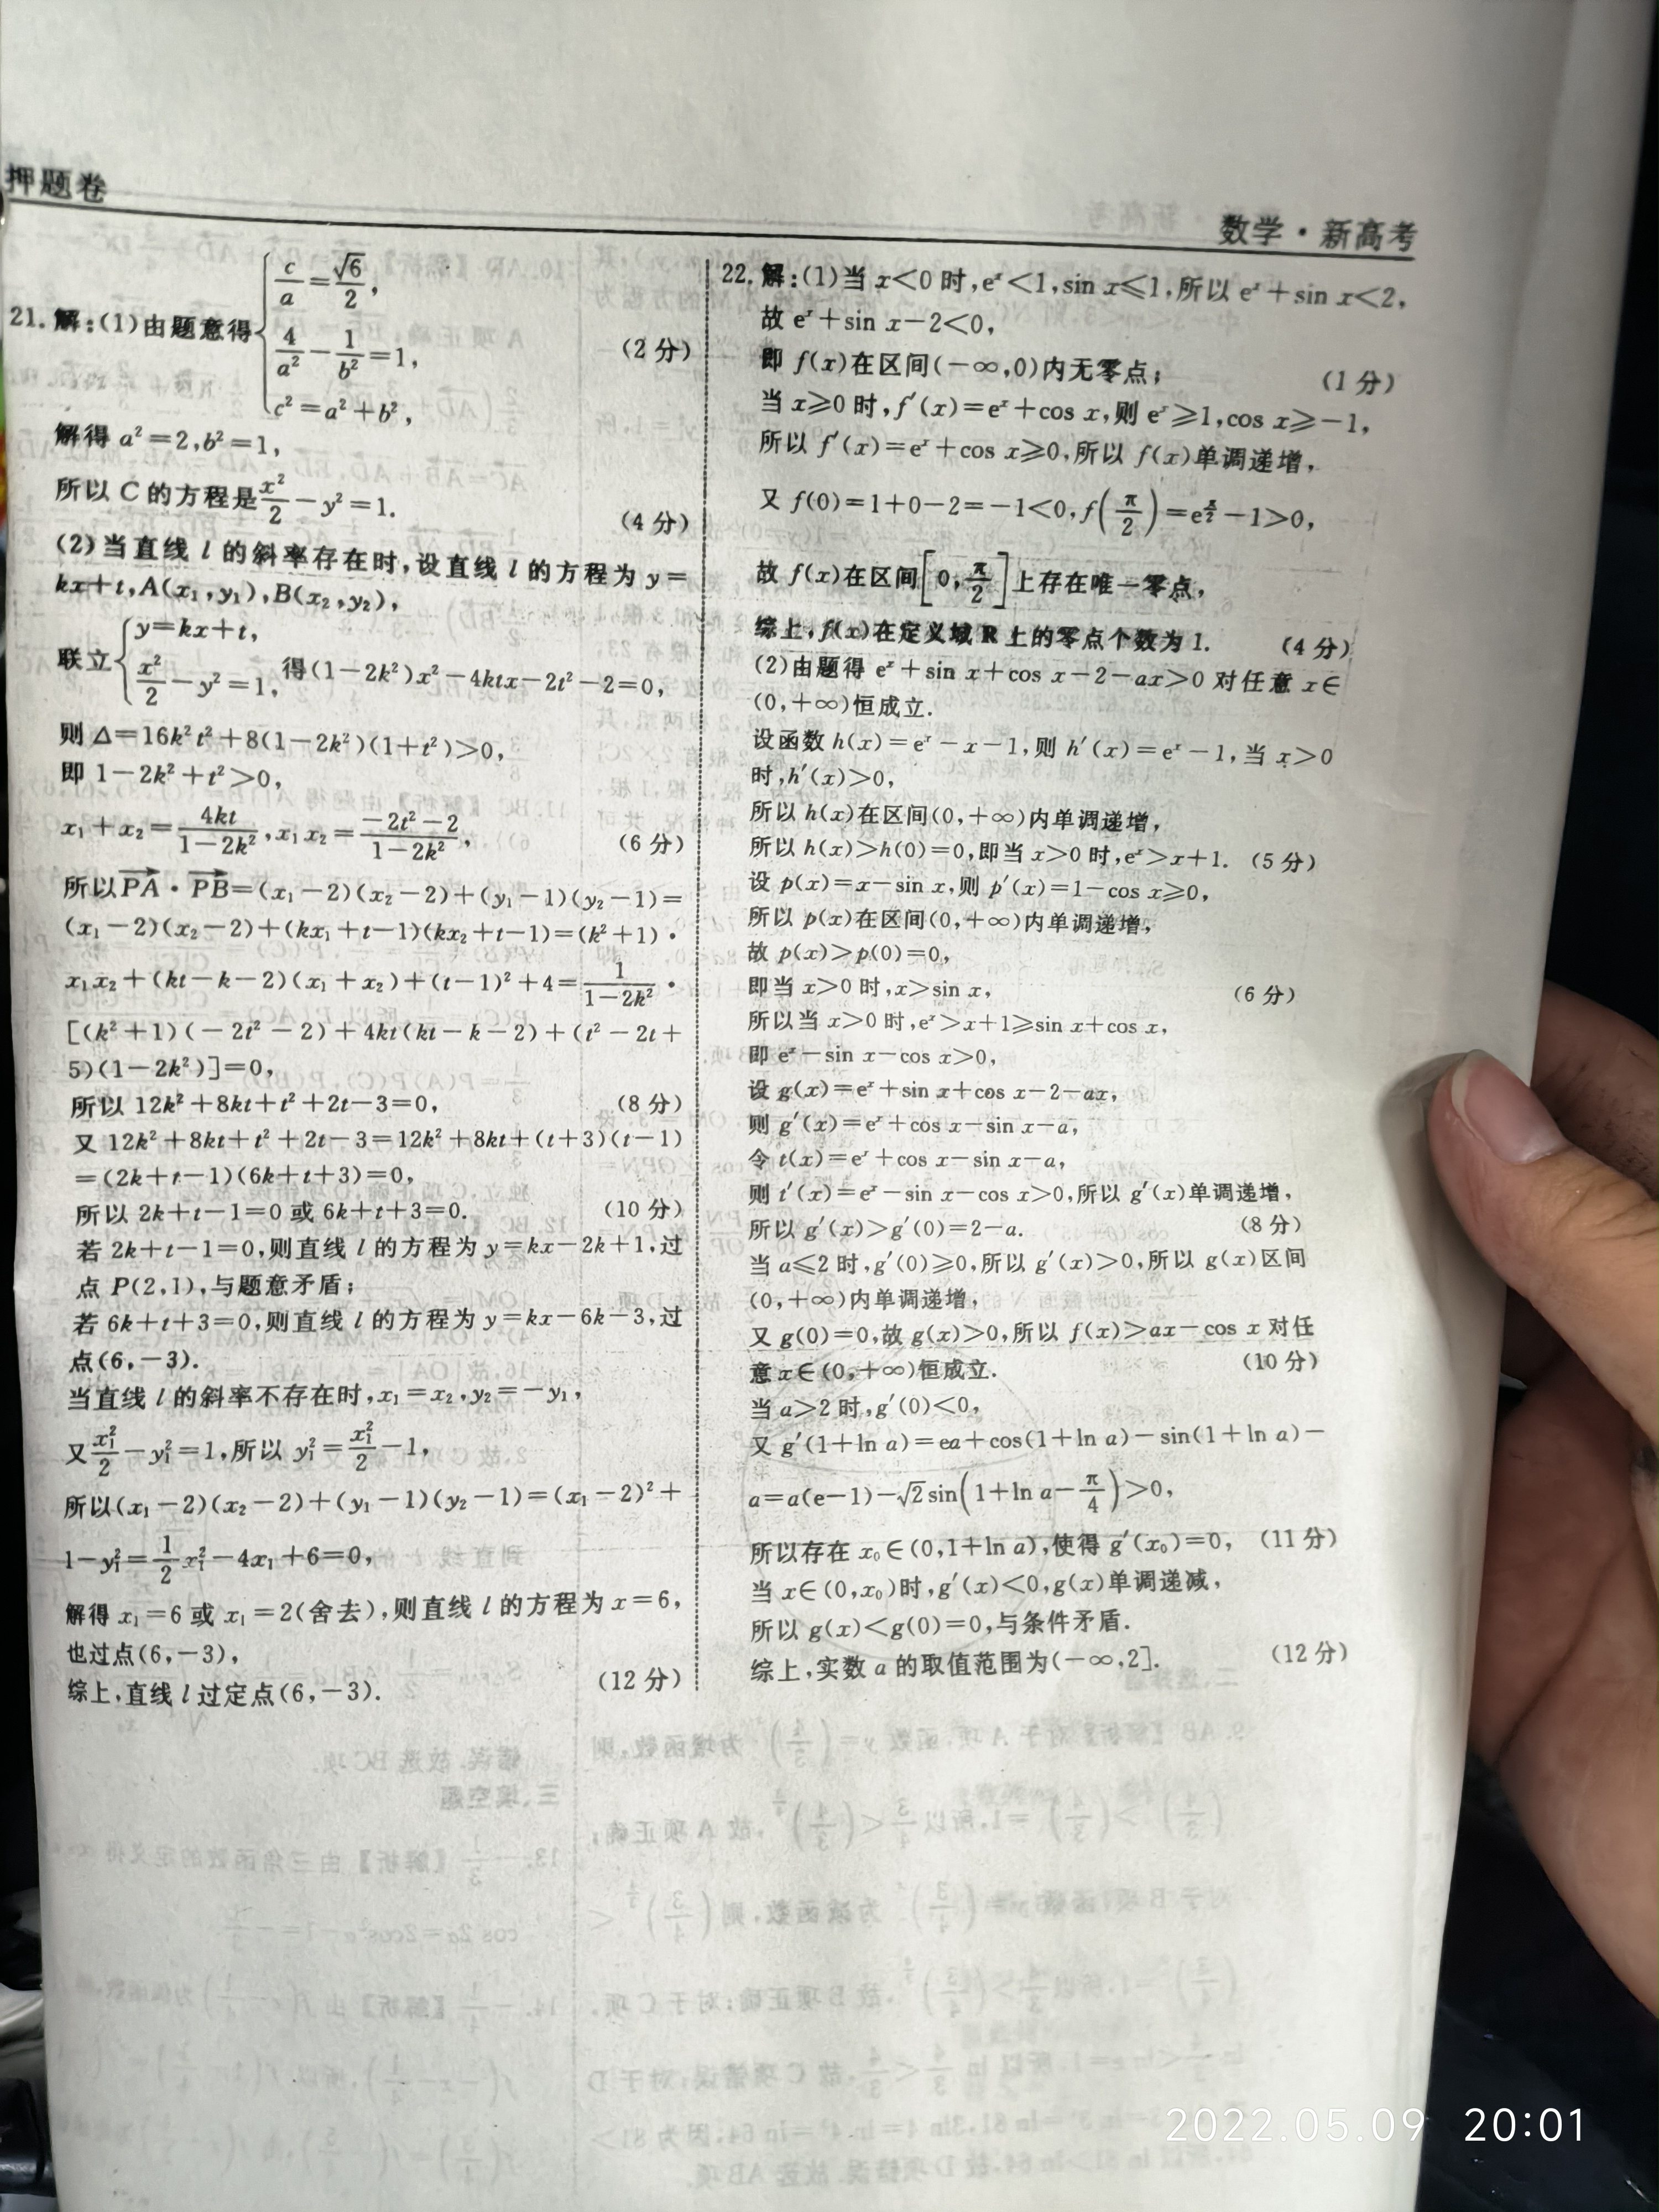 押题卷
数学·新高考
21. 解:(1)由题意得{c/a=√6/2,
4/a²-1/b²=1, (2分)
c²=a²+b²,
解得 a²=2,b²=1,
所以 C 的方程是x²/2-y²=1. (4分)
(2)当直线 l 的斜率存在时,设直线 l 的方程为 y=
kx+t,A(x₁,y₁),B(x₂,y₂),
联立{y=kx+t,
x²/2-y²=1, 得(1-2k²)x²-4ktx-2t²-2=0,
则 Δ=16k²t²+8(1-2k²)(1+t²)>0,
即 1-2k²+t²>0,
x₁+x₂=4kt/(1-2k²),x₁x₂=(-2t²-2)/(1-2k²), (6分)
所以PA·PB=(x₁-2)(x₂-2)+(y₁-1)(y₂-1)=
(x₁-2)(x₂-2)+(kx₁+t-1)(kx₂+t-1)=(k²+1)·
x₁x₂+(kt-k-2)(x₁+x₂)+(t-1)²+4=1/(1-2k²)·
[(k²+1)(-2t²-2)+4kt(kt-k-2)+(t²-2t+
5)(1-2k²)]=0,
所以 12k²+8kt+t²+2t-3=0, (8分)
又 12k²+8kt+t²+2t-3=12k²+8kt+(t+3)(t-1)
=(2k+t-1)(6k+t+3)=0,
所以 2k+t-1=0 或 6k+t+3=0. (10分)
若 2k+t-1=0,则直线 l 的方程为 y=kx-2k+1,过
点 P(2,1),与题意矛盾;
若 6k+t+3=0,则直线 l 的方程为 y=kx-6k-3,过
点(6,-3).
当直线 l 的斜率不存在时,x₁=x₂,y₂=-y₁,
又x₁²/2-y₁²=1,所以 y₁²=x₁²/2-1,
所以(x₁-2)(x₂-2)+(y₁-1)(y₂-1)=(x₁-2)²+
1-y₁²=1/2x₁²-4x₁+6=0,
解得 x₁=6 或 x₁=2(舍去),则直线 l 的方程为 x=6,
也过点(6,-3),
综上,直线 l 过定点(6,-3). (12分)
22. 解:(1)当 x<0 时,eˣ<1,sin x⩽1,所以 eˣ+sin x<2,
故 eˣ+sin x-2<0,
即 f(x)在区间(-∞,0)内无零点; (1分)
当 x⩾0 时,f′(x)=eˣ+cos x,则 eˣ⩾1,cos x⩾-1,
所以 f′(x)=eˣ+cos x⩾0,所以 f(x)单调递增,
又 f(0)=1+0-2=-1<0,f(π/2)=e^(π/2)-1>0,
故 f(x)在区间[0,π/2]上存在唯一零点,
综上,f(x)在定义域 R 上的零点个数为 1. (4分)
(2)由题得 eˣ+sin x+cos x-2-ax>0 对任意 x∈
(0,+∞)恒成立.
设函数 h(x)=eˣ-x-1,则 h′(x)=eˣ-1,当 x>0
时,h′(x)>0,
所以 h(x)在区间(0,+∞)内单调递增,
所以 h(x)>h(0)=0,即当 x>0 时,eˣ>x+1. (5分)
设 p(x)=x-sin x,则 p′(x)=1-cos x⩾0,
所以 p(x)在区间(0,+∞)内单调递增,
故 p(x)>p(0)=0,
即当 x>0 时,x>sin x, (6分)
所以当 x>0 时,eˣ>x+1⩾sin x+cos x,
即 eˣ-sin x-cos x>0,
设 g(x)=eˣ+sin x+cos x-2-ax,
则 g′(x)=eˣ+cos x-sin x-a,
令 t(x)=eˣ+cos x-sin x-a,
则 t′(x)=eˣ-sin x-cos x>0,所以 g′(x)单调递增,
所以 g′(x)>g′(0)=2-a. (8分)
当 a⩽2 时,g′(0)⩾0,所以 g′(x)>0,所以 g(x)区间
(0,+∞)内单调递增,
又 g(0)=0,故 g(x)>0,所以 f(x)>ax-cos x 对任
意 x∈(0,+∞)恒成立. (10分)
当 a>2 时,g′(0)<0,
又 g′(1+ln a)=ea+cos(1+ln a)-sin(1+ln a)-
a=a(e-1)-√2sin(1+ln a-π/4)>0,
所以存在 x₀∈(0,1+ln a),使得 g′(x₀)=0, (11分)
当 x∈(0,x₀)时,g′(x)<0,g(x)单调递减,
所以 g(x)<g(0)=0,与条件矛盾.
综上,实数 a 的取值范围为(-∞,2]. (12分)
2022.05.09 20:01